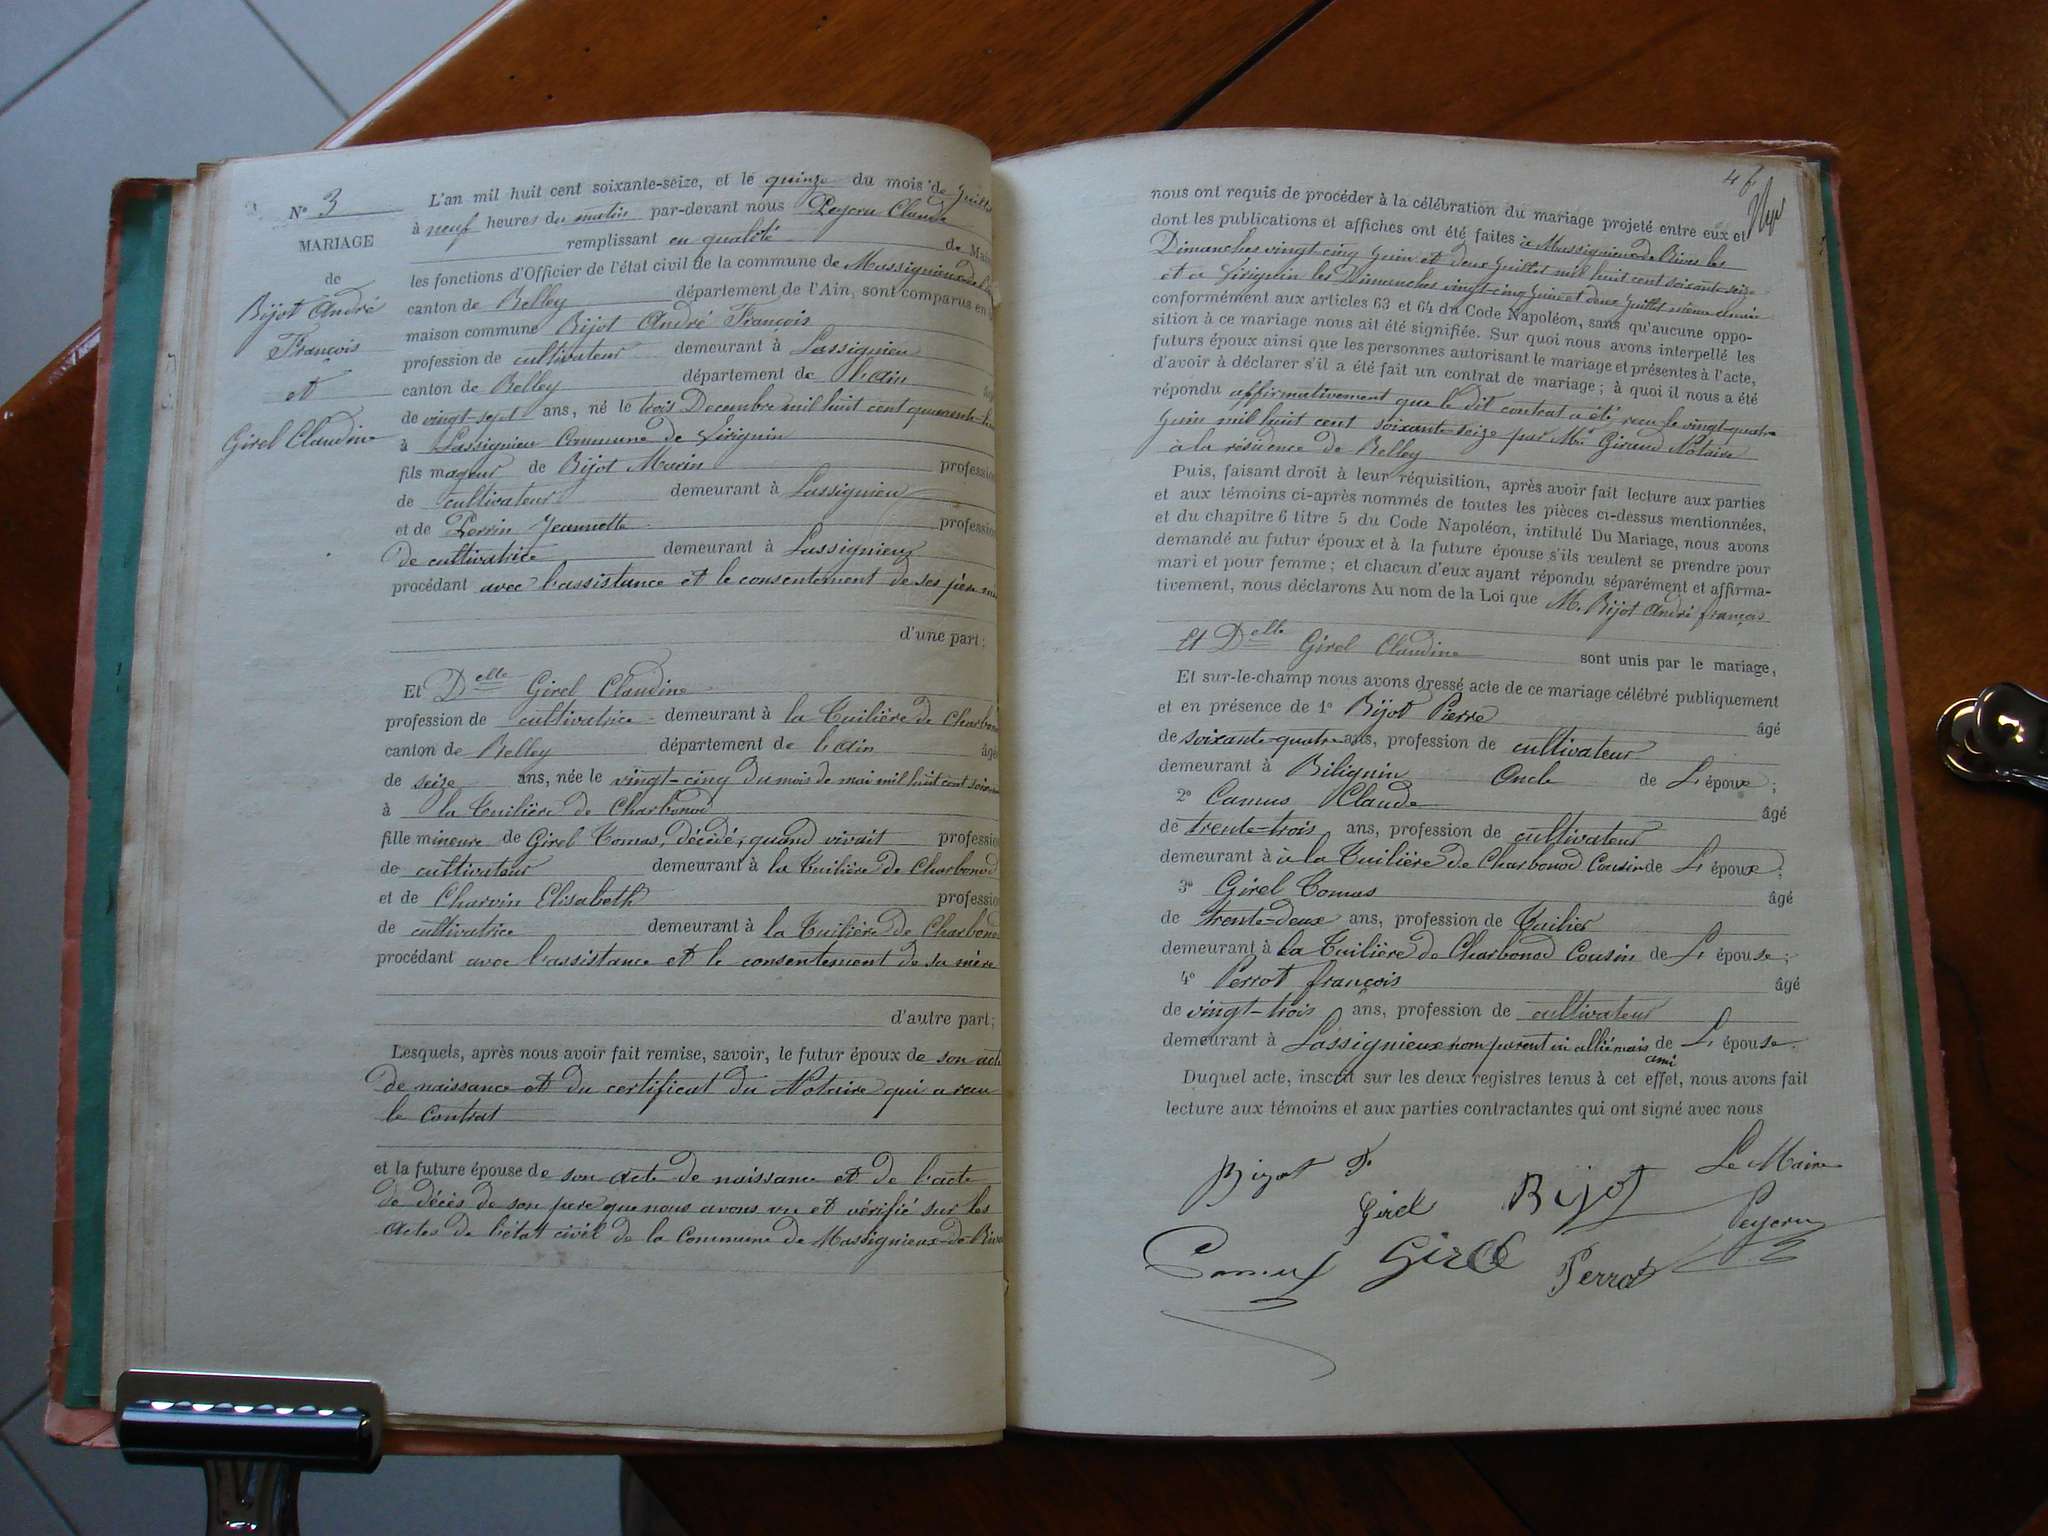 N° 3
MARIAGE
de
Bijot André
François
et
Girel Claudine
L'an mil huit cent soixante-seize, et le quinze du mois de Juillet
à neuf heures du matin par-devant nous Peyeru Claude
remplissant en qualité de Maire
les fonctions d'Officier de l'état civil de la commune de Massignieu de
canton de Belley département de l'Ain, sont comparus en la
maison commune Bijot André François
profession de cultivateur demeurant à Lassignieu
canton de Belley département de l'ain âgé
de vingt-sept ans, né le trois Decembre mil huit cent quarante-huit
à Lassignieu Commune de Virignin
fils mageur de Bijot Marin profession
de cultivateur demeurant à Lassignieu
et de Perrin Jeannette profession
de cultivatrice demeurant à Lassignieu
procédant avec l'assistance et le consentement de ses père
d'une part;
Et Delle Girel Claudine
profession de cultivatrice demeurant à la Tuilière de Charbonod
canton de Belley département de l'ain âgé
de seize ans, née le vingt-cinq du mois de mai mil huit cent soixante
à la Tuilière de Charbonod
fille mineure de Girel Tomas, décédé, quand vivait profession
de cultivateur demeurant à la Tuilière de Charbonod
et de Charvin Elisabeth profession
de cultivatrice demeurant à la Tuilière de Charbonod
procédant avec l'assistance et le consentement de sa mère
d'autre part;
Lesquels, après nous avoir fait remise, savoir, le futur époux de son acte
de naissance et du certificat du Notaire qui a recu
le Contrat
et la future épouse de son acte de naissance et de l'acte
de décès de son pere que nous avons vu et vérifié sur les
actes de l'état civil de la Commune de Massignieux-de-Rive
4 f
nous ont requis de procéder à la célébration du mariage projeté entre eux et
dont les publications et affiches ont été faites à Massignieu de Rives les
Dimanches vingt-cinq Juin et deux Juillet mil huit cent soixante-seize
et à Virignin les Dimanches vingt-cinq Juin et deux Juillet même année
conformément aux articles 63 et 64 du Code Napoléon, sans qu'aucune oppo-
sition à ce mariage nous ait été signifiée. Sur quoi nous avons interpellé les
futurs époux ainsi que les personnes autorisant le mariage et présentes à l'acte,
d'avoir à déclarer s'il a été fait un contrat de mariage ; à quoi il nous a été
répondu affirmativement que le dit contrat a été recu le vingt-quatre
Juin mil huit cent soixante-seize par Me Giraud Notaire
à la résidence de Belley
Puis, faisant droit à leur réquisition, après avoir fait lecture aux parties
et aux témoins ci-après nommés de toutes les pièces ci-dessus mentionnées,
et du chapitre 6 titre 5 du Code Napoléon, intitulé Du Mariage, nous avons
demandé au futur époux et à la future épouse s'ils veulent se prendre pour
mari et pour femme ; et chacun d'eux ayant répondu séparément et affirma-
tivement, nous déclarons Au nom de la Loi que M. Bijot André françois
Et Delle Girel Claudine sont unis par le mariage,
Et sur-le-champ nous avons dressé acte de ce mariage célébré publiquement
et en présence de 1° Bijot Pierre âgé
de soixante-quatre ans, profession de cultivateur
demeurant à Bilignin Oncle de L'époux ;
2° Camus Claude âgé
de trente-trois ans, profession de cultivateur
demeurant à à la Tuilière de Charbonod Cousin de L'époux ;
3° Girel Tomas âgé
de trente-deux ans, profession de Tuilier
demeurant à la Tuilière de Charbonod Cousin de L'épouse ;
4° Perrot françois âgé
de vingt-trois ans, profession de cultivateur
demeurant à Lassignieux non parent ni allié mais de L'épouse.
ami
Duquel acte, inscrit sur les deux registres tenus à cet effet, nous avons fait
lecture aux témoins et aux parties contractantes qui ont signé avec nous
Bijot F. Girel Bijot Le Maire
Camus Girel Perrot Peyeru